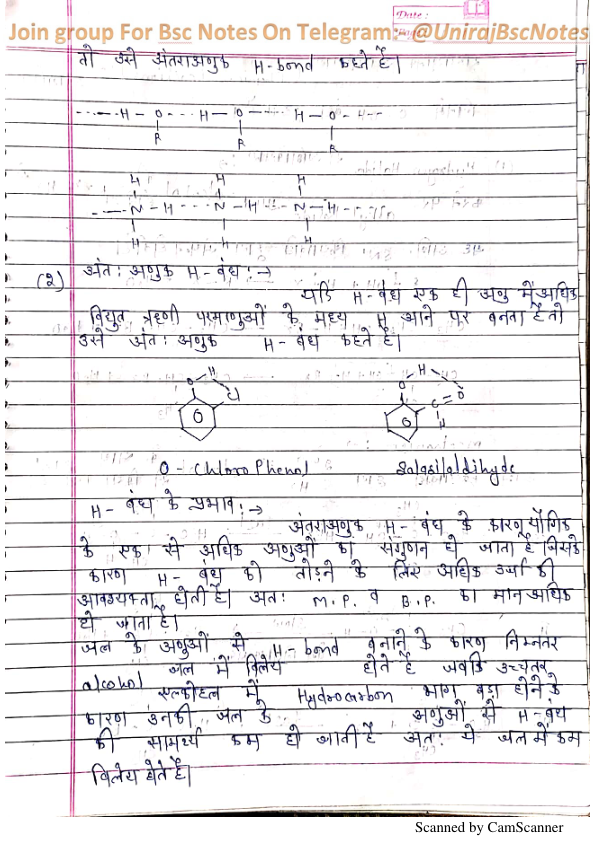 Date :
Join group For Bsc Notes On Telegram:- @UnirajBscNotes
तो उसे अंतराअणुक H-bond कहते हैं।
---- H - O ---- H - O ---- H - O - H --
R R R
H H H
---N - H ---- N - H ---- N - H ----
H H H
(2) अंत: अणुक H - बंध :→
यदि H - बंध एक ही अणु में अधिक
विद्युत ऋणी परमाणुओं के मध्य H आने पर बनता है तो
उसे अंत: अणुक H - बंध कहते हैं।
O H Cl
O H C = O H
O - Chloro Phenol Salasilaldihyde
H - बंध के प्रभाव :→
अंतराअणुक H - बंध के कारण यौगिक
के एक से अधिक अणुओं का संगुणन हो जाता है जिसके
कारण H - बंध को तोड़ने के लिए अधिक उर्जा की
आवश्यक्ता होती है। अत: M.P. व B.P. का मान अधिक
हो जाता है।
जल के अणुओं से H-bond बनाने के कारण निम्नतर
alcohol जल में विलेय होते है जबकि उच्चतर
एल्कोहल में Hydrocarbon भाग बड़ा होने के
कारण उनकी जल के अणुओं से H-बंध
की सामर्थ्य कम हो जाती हैं अत: ये जल में कम
विलेय होते हैं।
Scanned by CamScanner